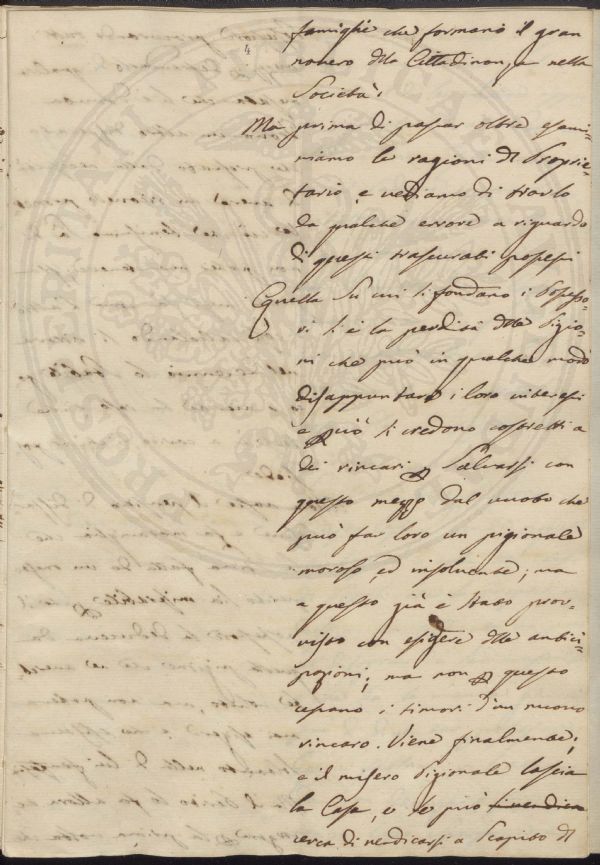 4
famiglie che formano il gran
novero dlla Cittadinan,a nella
Società.
Ma prima di passar oltre esami-
niamo le ragioni dl Proprie-
tario, e vediamo di trarlo
da qualche errore a riguardo
di questi trascurati possessi
Quella su cui si fondano i Possesso-
ri si è la perdita dlle Pigio-
ni che può in qualche modo
disappuntare i loro interessi
e più si credono costretti a
dei rincari Salvarsi con
questo mezzo dal vuoto che
può far loro un pigionale
moroso, ed insolvente; ma
a questo già è stato prov-
visto con esigere dlle antici-
pazioni; ma non questo
cessano i timori d'un nuovo
rincaro. Viene finalmente;
e il misero Pigionale lascia
la Casa, e se può
cerca di vendicarsi a Scapito dl